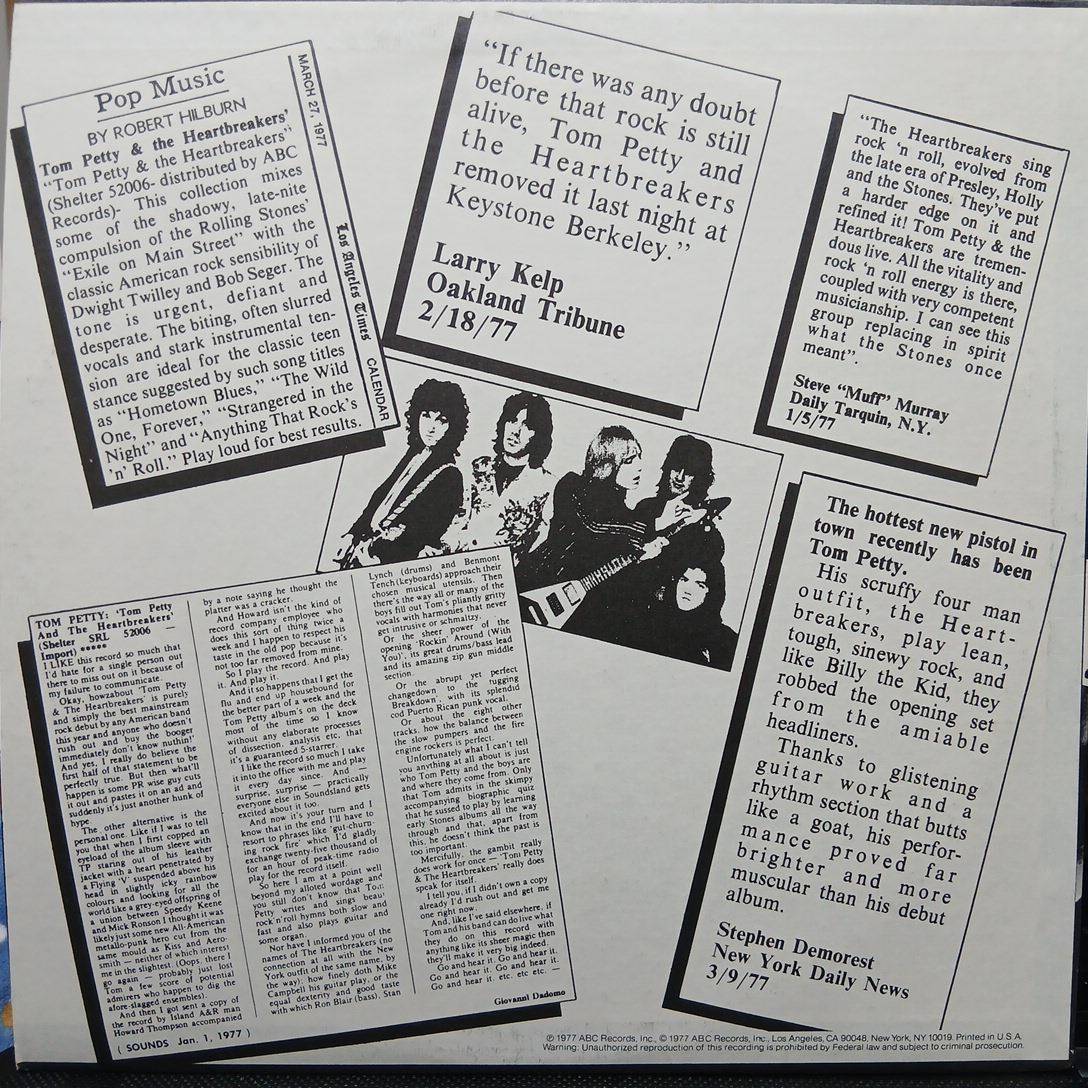 Pop Music
BY ROBERT HILBURN
Tom Petty & the Heartbreakers'
"Tom Petty & the Heartbreakers"
(Shelter 52006- distributed by ABC
Records)- This collection mixes
some of the shadowy, late-nite
compulsion of the Rolling Stones'
"Exile on Main Street" with the
classic American rock sensibility of
Dwight Twilley and Bob Seger. The
tone is urgent, defiant and
desperate. The biting, often slurred
vocals and stark instrumental ten-
sion are ideal for the classic teen
stance suggested by such song titles
as "Hometown Blues," "The Wild
One, Forever," "Strangered in the
Night" and "Anything That Rock's
'n' Roll." Play loud for best results.
MARCH 27, 1977
Los Angeles Times CALENDAR
"If there was any doubt
before that rock is still
alive, Tom Petty and
the Heartbreakers
removed it last night at
Keystone Berkeley."
Larry Kelp
Oakland Tribune
2/18/77
"The Heartbreakers sing
rock 'n roll, evolved from
the late era of Presley, Holly
and the Stones. They've put
a harder edge on it and
refined it! Tom Petty & the
Heartbreakers are tremen-
dous live. All the vitality and
rock 'n roll energy is there,
coupled with very competent
musicianship. I can see this
group replacing in spirit
what the Stones once
meant".
Steve "Muff" Murray
Daily Tarquin, N.Y.
1/5/77
TOM PETTY: 'Tom Petty
And The Heartbreakers'
(Shelter SRL 52006 —
Import) *****
I LIKE this record so much that
I'd hate for a single person out
there to miss out on it because of
my failure to communicate.
Okay, howzabout 'Tom Petty
& The Heartbreakers' is purely
and simply the best mainstream
rock debut by any American band
this year and anyone who doesn't
rush out and buy the booger
immediately don't know nuthin!'
And yes, I really do believe the
first half of that statement to be
perfectly true. But then what'll
happen is some PR wise guy cuts
it out and pastes it on an ad and
suddenly it's just another hunk of
hype.
The other alternative is the
personal one. Like if I was to tell
you that when I first copped an
eyeload of the album sleeve with
TP staring out of his leather
jacket with a heart penetrated by
a Flying 'V' suspended above his
head in slightly icky rainbow
colours and looking for all the
world like a grey-eyed offspring of
a union between Speedy Keene
and Mick Ronson I thought it was
likely just some new All-American
metallo-punk hero cut from the
same mould as Kiss and Aero-
smith — neither of which interest
me in the slightest. (Oops, there I
go again — probably just lost
Tom a few score of potential
admirers who happen to dig the
afore-slagged ensembles).
And then I got sent a copy of
the record by Island A&R man
Howard Thompson accompanied
by a note saying he thought the
platter was a cracker.
And Howard isn't the kind of
record company employee who
does this sort of thing twice a
week and I happen to respect his
taste in the old pop because it's
not too far removed from mine.
So I play the record. And play
it. And play it.
And it so happens that I get the
flu and end up housebound for
the better part of a week and the
Tom Petty album's on the deck
most of the time so I know
without any elaborate processes
of dissection, analysis etc, that
it's a guaranteed 5-starrer.
I like the record so much I take
it into the office with me and play
it every day since. And —
surprise, surprise — practically
everyone else in Soundsland gets
excited about it too.
And now it's your turn and I
know that in the end I'll have to
resort to phrases like 'gut-churn-
ing rock fire' which I'd gladly
exchange twenty-five thousand of
for an hour of peak-time radio
play for the record itself.
So here I am at a point well
beyond my alloted wordage and
you still don't know that Tom
Petty writes and sings beaut
rock'n'roll hymns both slow and
fast and also plays guitar and
some organ.
Nor have I informed you of the
names of The Heartbreakers (no
connection at all with the New
York outfit of the same name, by
the way): how finely doth Mike
Campbell his guitar play, or the
equal dexterity and good taste
with which Ron Blair (bass), Stan
Lynch (drums) and Benmont
Tench (keyboards) approach their
chosen musical utensils. Then
there's the way all or many of the
boys fill out Tom's pliantly gritty
vocals with harmonies that never
get intrusive or schmaltzy.
Or the sheer power of the
opening 'Rockin' Around (With
You)', its great drums/bass lead
and its amazing zip gun middle
section.
Or the abrupt yet perfect
changedown to the rugging
'Breakdown' with its splendid
cod Puerto Rican punk vocal.
Or about the eight other
tracks, how the balance between
the slow pumpers and the fire
engine rockers is perfect.
Unfortunately what I can't tell
you anything at all about is just
who Tom Petty and the boys are
and where they come from. Only
that Tom admits in the skimpy
accompanying biographic quiz
that he sussed to play by learning
early Stones albums all the way
through and that, apart from
this, he doesn't think the past is
too important.
Mercifully, the gambit really
does work for once — 'Tom Petty
& The Heartbreakers' really does
speak for itself.
I tell you, if I didn't own a copy
already I'd rush out and get me
one right now.
And, like I've said elsewhere, if
Tom and his band can do live what
they do on this record with
anything like its sheer magic then
they'll make it very big indeed.
Go and hear it. Go and hear it.
Go and hear it. Go and hear it.
Go and hear it. etc. etc etc. —
Giovanni Dadomo
( SOUNDS Jan. 1, 1977 )
The hottest new pistol in
town recently has been
Tom Petty.
His scruffy four man
outfit, the Heart-
breakers, play lean,
tough, sinewy rock, and
like Billy the Kid, they
robbed the opening set
from the amiable
headliners.
Thanks to glistening
guitar work and a
rhythm section that butts
like a goat, his perfor-
mance proved far
brighter and more
muscular than his debut
album.
Stephen Demorest
New York Daily News
3/9/77
℗ 1977 ABC Records, Inc., © 1977 ABC Records, Inc., Los Angeles, CA 90048, New York, NY 10019. Printed in U.S.A.
Warning: Unauthorized reproduction of this recording is prohibited by Federal law and subject to criminal prosecution.